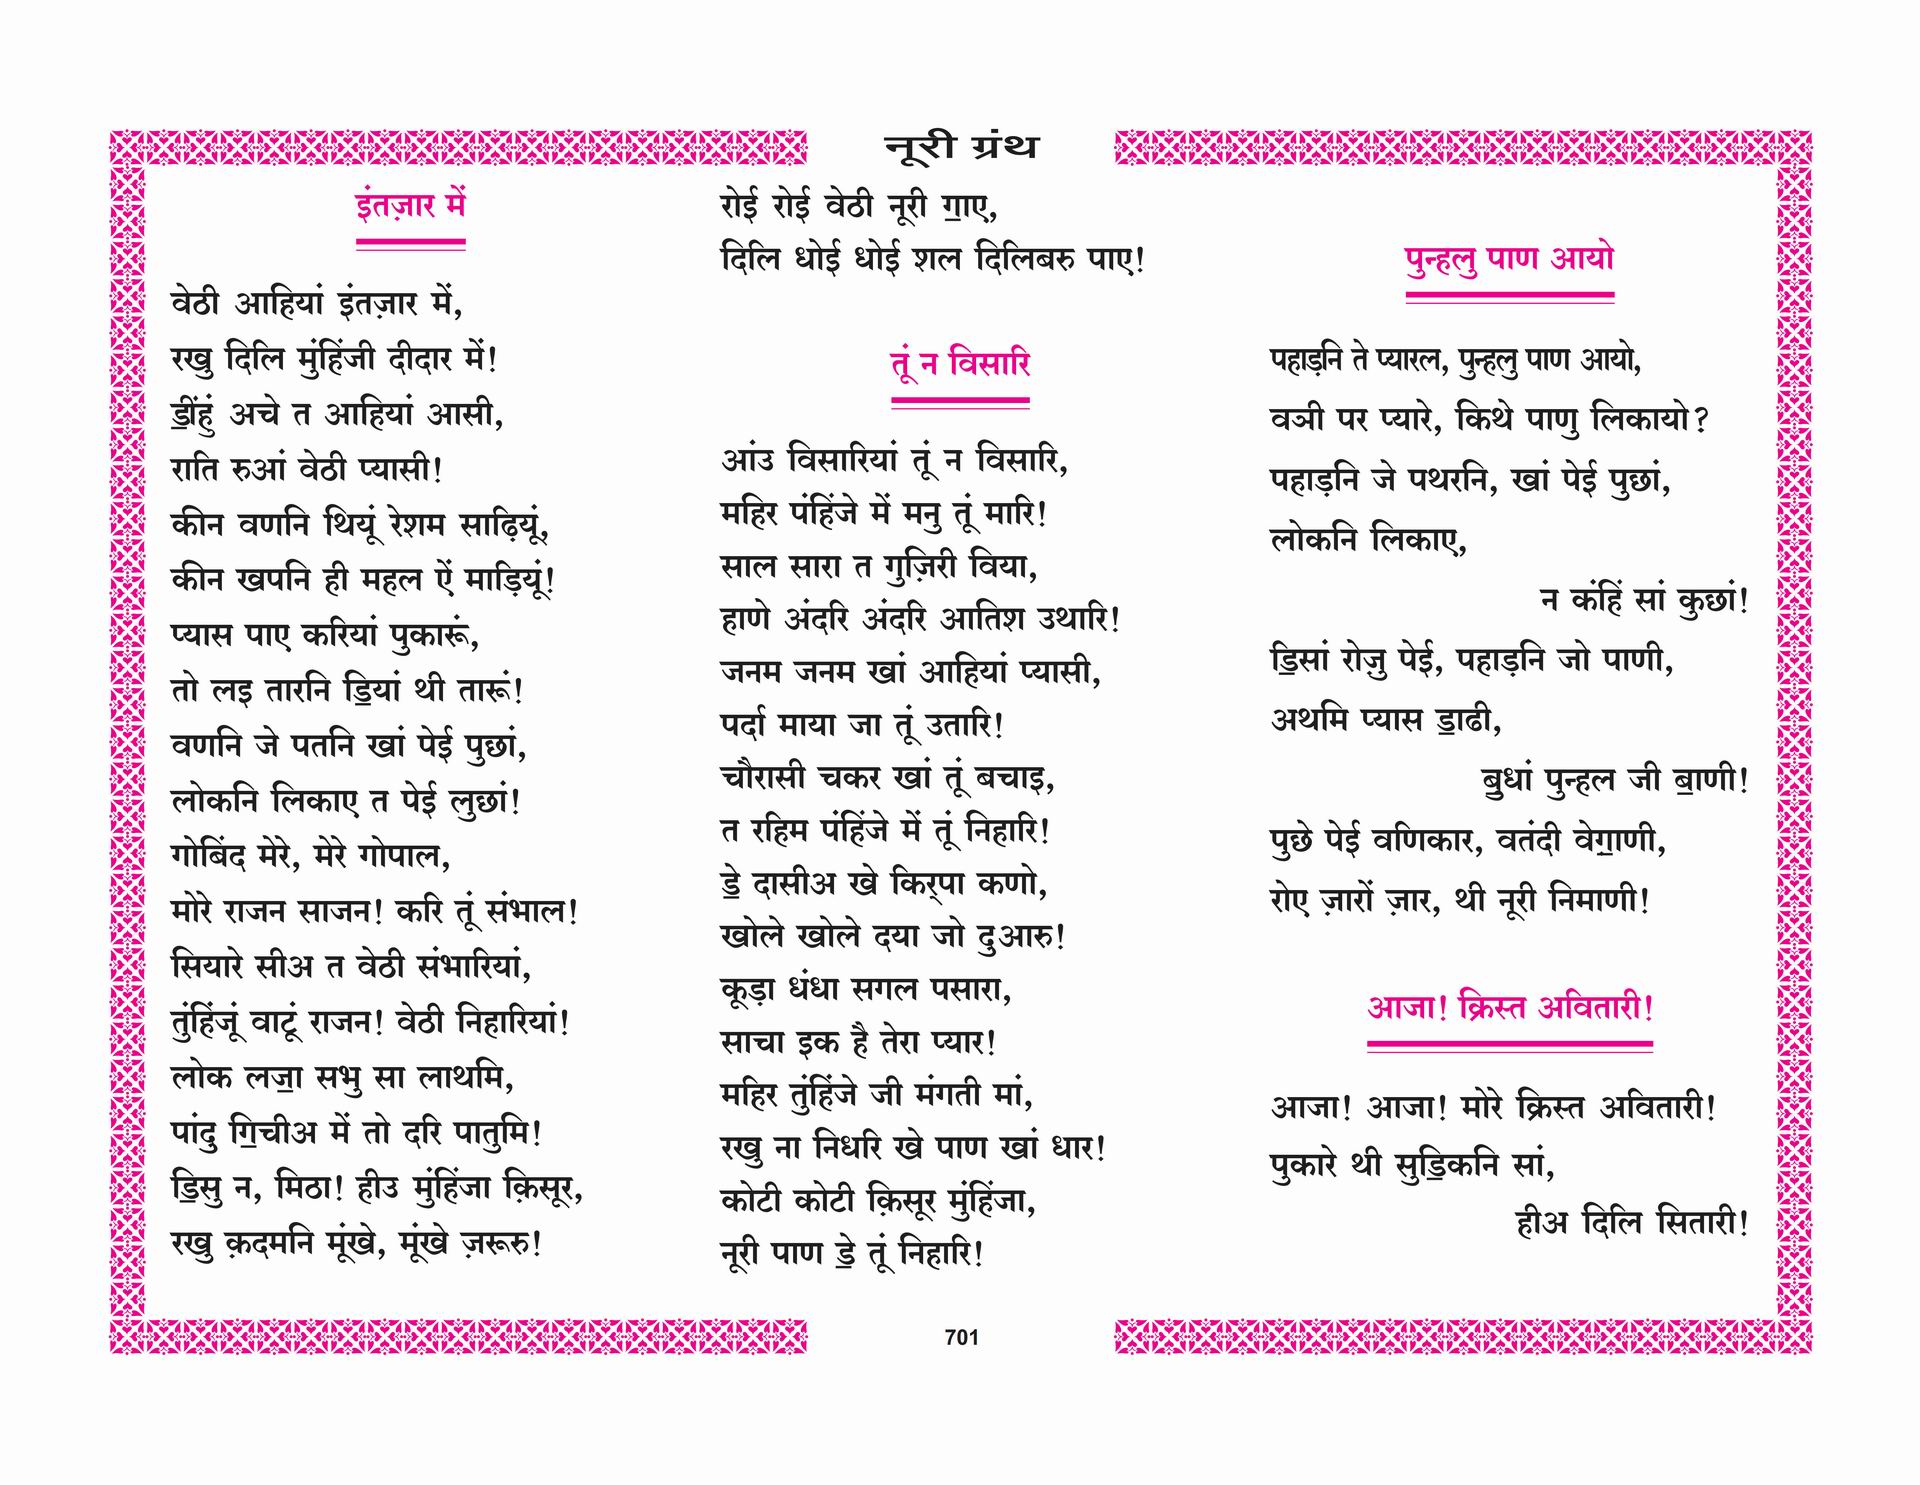 नूरी ग्रंथ
इंतज़ार में
वेठी आहियां इंतज़ार में,
रखु दिलि मुंहिंजी दीदार में!
ॾींहुं अचे त आहियां आसी,
राति रुआं वेठी प्यासी!
कीन वणनि थियूं रेशम साढ़ियूं,
कीन खपनि ही महल ऐं माड़ियूं!
प्यास पाए करियां पुकारूं,
तो लइ तारनि ॾियां थी तारूं!
वणनि जे पतनि खां पेई पुछां,
लोकनि लिकाए त पेई लुछां!
गोबिंद मेरे, मेरे गोपाल,
मोरे राजन साजन! करि तूं संभाल!
सियारे सीअ त वेठी संभारियां,
तुंहिंजूं वाटूं राजन! वेठी निहारियां!
लोक लॼा सभु सा लाथमि,
पांदु ॻिचीअ में तो दरि पातुमि!
ॾिसु न, मिठा! हीउ मुंहिंजा क़िसूर,
रखु क़दमनि मूंखे, मूंखे ज़रूरु!
रोई रोई वेठी नूरी ॻाए,
दिलि धोई धोई शल दिलिबरु पाए!
तूं न विसारि
आंउ विसारियां तूं न विसारि,
महिर पंहिंजे में मनु तूं मारि!
साल सारा त गुज़िरी विया,
हाणे अंदरि अंदरि आतिश उथारि!
जनम जनम खां आहियां प्यासी,
पर्दा माया जा तूं उतारि!
चौरासी चकर खां तूं बचाइ,
त रहिम पंहिंजे में तूं निहारि!
ॾे दासीअ खे किर्पा कणो,
खोले खोले दया जो दुआरु!
कूड़ा धंधा सगल पसारा,
साचा इक है तेरा प्यार!
महिर तुंहिंजे जी मंगती मां,
रखु ना निधरि खे पाण खां धार!
कोटी कोटी क़िसूर मुंहिंजा,
नूरी पाण ॾे तूं निहारि!
पुन्हलु पाण आयो
पहाड़नि ते प्यारल, पुन्हलु पाण आयो,
वञी पर प्यारे, किथे पाणु लिकायो?
पहाड़नि जे पथरनि, खां पेई पुछां,
लोकनि लिकाए,
न कंहिं सां कुछां!
ॾिसां रोज़ु पेई, पहाड़नि जो पाणी,
अथमि प्यास ॾाढी,
ॿुधां पुन्हल जी ॿाणी!
पुछे पेई वणिकार, वतंदी वेॻाणी,
रोए ज़ारों ज़ार, थी नूरी निमाणी!
आजा! क्रिस्त अवितारी!
आजा! आजा! मोरे क्रिस्त अवितारी!
पुकारे थी सुॾिकनि सां,
हीअ दिलि सितारी!
701